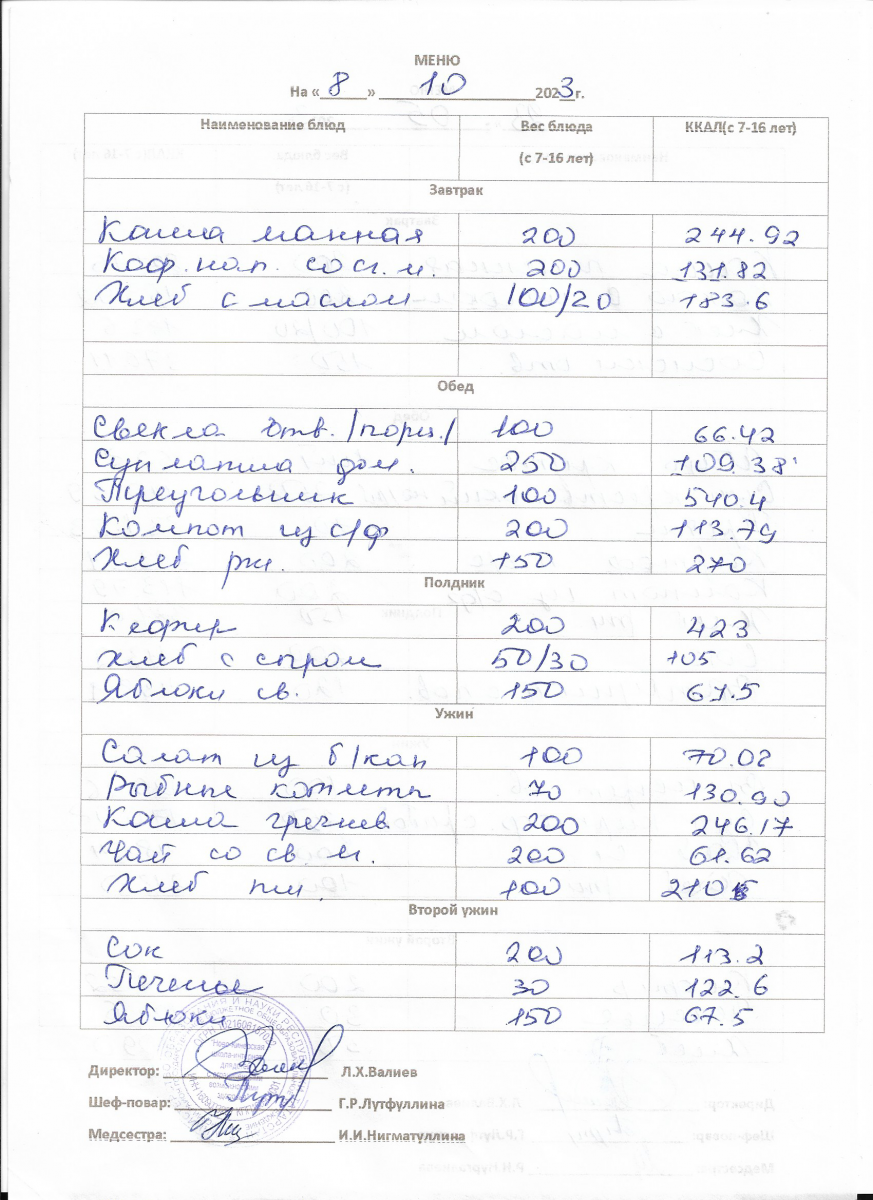 МЕНЮ
На «8» 10 2023г.
Наименование блюд Вес блюда (с 7-16 лет) ККАЛ(с 7-16 лет)
Завтрак
Каша манная 200 244.92
Коф.нап. со сг.м. 200 131.82
Хлеб с маслом 100/20 183.6
Обед
Свекла отв. /порц./ 100 66.42
Суп лапша дом. 250 109.38
Треугольник 100 540.4
Компот из с/ф 200 113.79
Хлеб рж. 150 270
Полдник
Кефир 200 423
Хлеб с сыром 50/30 105
Яблоки св. 150 67.5
Ужин
Салат из б/кап 100 70.02
Рыбные котлеты 70 130.90
Каша гречнев. 200 246.17
Чай со св.м. 200 61.62
Хлеб пш 100 210
Второй ужин
Сок 200 113.2
Печенье 30 122.6
Яблоки 150 67.5
Директор: Л.Х.Валиев
Шеф-повар: Г.Р.Лутфуллина
Медсестра: И.И.Нигматуллина